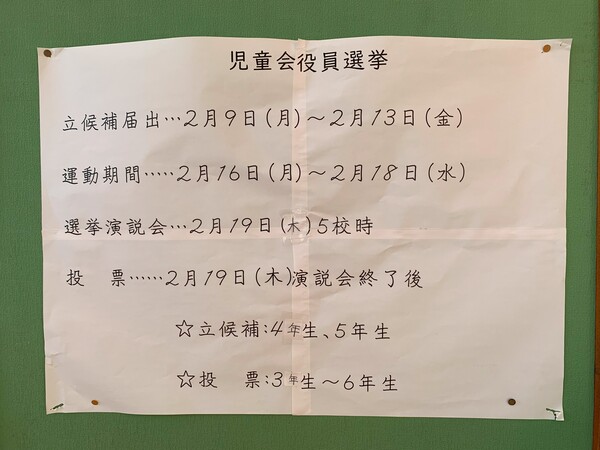 児童会役員選挙
立候補届出…2月9日(月)～2月13日(金)
運動期間……2月16日(月)～2月18日(水)
選挙演説会…2月19日(木)5校時
投　票……2月19日(木)演説会終了後
☆立候補:4年生、5年生
☆投　票:3年生～6年生